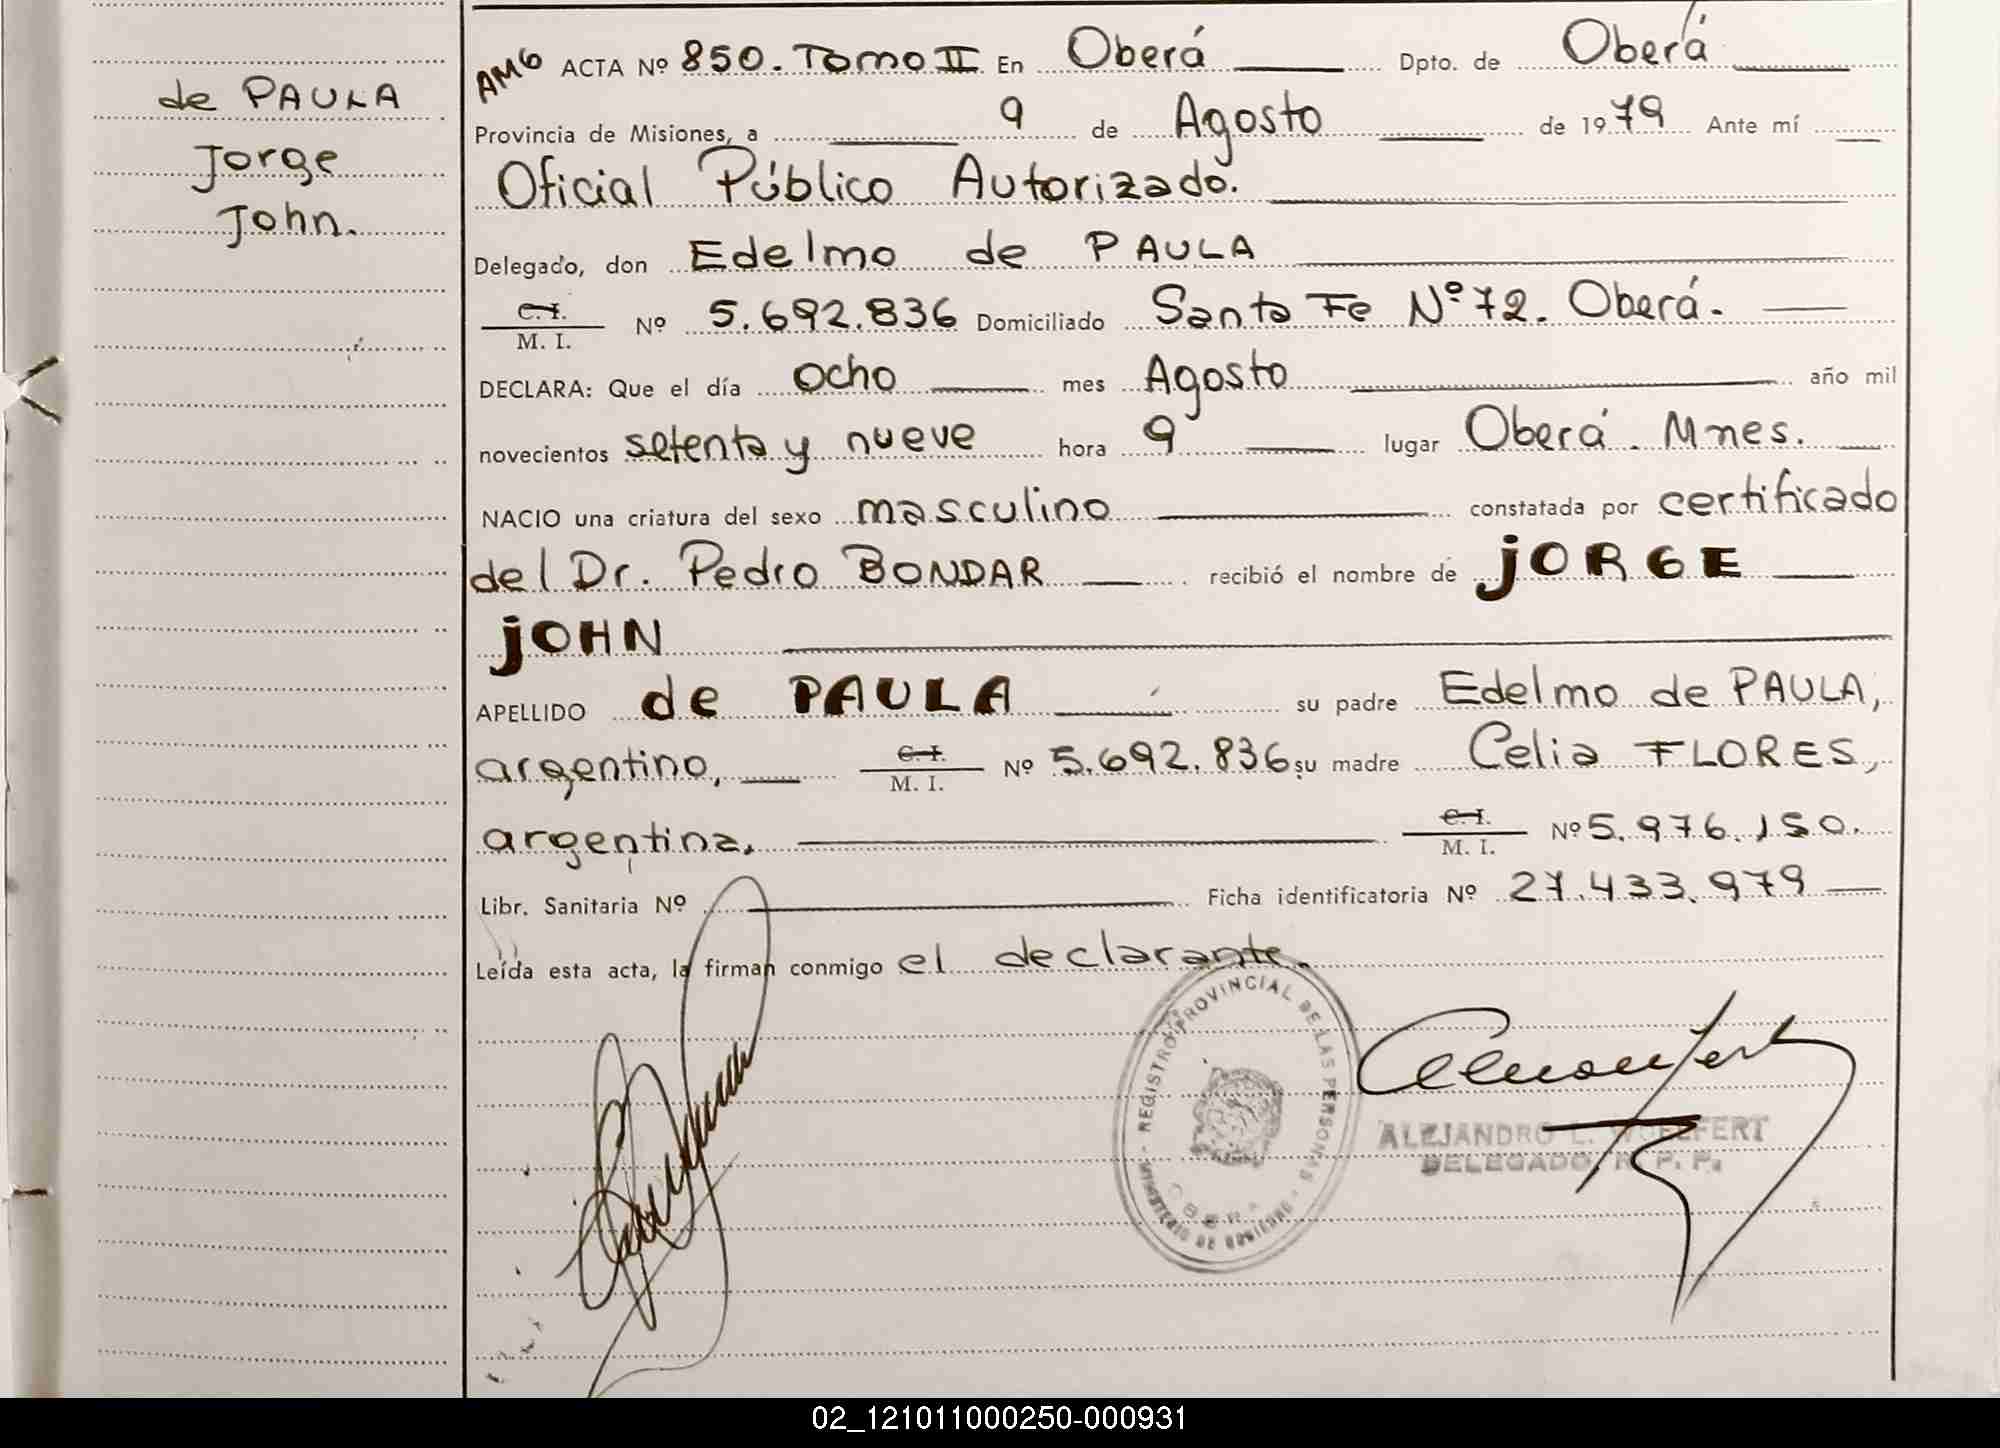 de PAULA
Jorge
John.
AM6 ACTA Nº 850. Tomo II En Oberá Dpto. de Oberá
Provincia de Misiones, a 9 de Agosto de 1979 Ante mí
Oficial Público Autorizado.
Delegado, don Edelmo de PAULA
C. I.
M. I. Nº 5.692.836 Domiciliado Santa Fe Nº 72. Oberá.
DECLARA: Que el día ocho mes Agosto año mil
novecientos setenta y nueve hora 9 lugar Oberá. Mnes.
NACIO una criatura del sexo masculino constatada por certificado
del Dr. Pedro BONDAR recibió el nombre de JORGE
JOHN
APELLIDO de PAULA su padre Edelmo de PAULA,
argentino, C. I. M. I. Nº 5.692.836 su madre Celia FLORES,
argentina. C. I. M. I. Nº 5.976.150.
Libr. Sanitaria Nº Ficha identificatoria Nº 27.433.979
Leída esta acta, la firman conmigo el declarante.
REGISTRO PROVINCIAL DE LAS PERSONAS - MINISTERIO DE GOBIERNO -
OBERA
ALEJANDRO L. WOELFERT
DELEGADO R. P. P.
02_121011000250-000931